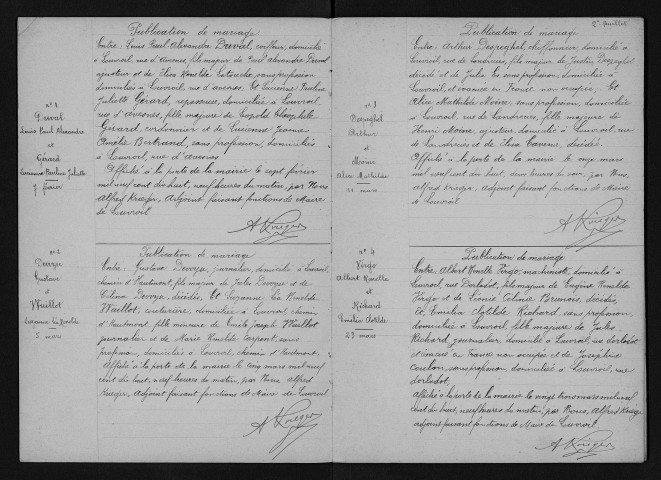 Publication de mariage
Entre: Louis Paul Alexandre Duval, coiffeur, domicilié
à Louvroil, rue d'avesnes, fils majeur de Paul Alexandre Duval
ajusteur et de sans profession
domiciliés à Louvroil, rue d'avesnes, Et Lucienne Pauline
Juliette Gérard, repasseuse, domiciliée à Louvroil
rue d'avesnes, fille majeure de Léopold Théophile
Gérard, cordonnier et de Lucienne Jeanne
Amélie Bertrand, sans profession, domiciliés
à Louvroil, rue d'avesnes
Affiché à la porte de la mairie le sept février
mil neuf cent dix huit, neuf heures du matin, par Nous
Alfred Krieger, Adjoint faisant fonctions de Maire
de Louvroil
A Krieger
n° 1
Duval
Louis Paul Alexandre
et
Gérard
Lucienne Pauline Juliette
7 février
n° 2
Gustave
et
Waillot
Suzanne Léa Romélde
5 mars
Publication de mariage
Entre: Gustave journalier, domicilié à Louvroil,
chemin d'Hautmont, fils majeur de Jules et de
Celina décédés, Et Suzanne Léa
Waillot, couturière, domiciliée à Louvroil, chemin
d'Hautmont, fille mineure de Emile Joseph Waillot
journalier et de Marie sans
profession, domiciliés à Louvroil, chemin d'Hautmont.
Affiché à la porte de la mairie le cinq mars mil neuf
cent dix huit, neuf heures du matin, par Nous Alfred
Krieger, Adjoint faisant fonctions de Maire de Louvroil
A Krieger
2e feuillet
Publication de mariage
Entre: Arthur Despeghel, chiffonnier, domicilié à
Louvroil, rue de Landrecies, fils majeur de Despeghel
décédé et de Julia sans profession, domiciliée à
Louvroil, et avant en France non occupée; Et
Alice Mathilde Moine sans profession, domiciliée
à Louvroil, rue de Landrecies, fille majeure de
Henri Moine ajusteur domicilié à Louvroil, rue
de Landrecies et de Elisa décédée.
Affiché à la porte de la mairie le onze mars
mil neuf cent dix huit, heures du soir, par Nous,
Alfred Krieger, Adjoint faisant fonctions de Maire
de Louvroil
A Krieger
n° 3
Despeghel
Arthur
et
Moine
Alice Mathilde
11 mars
n° 4
Virgo
Albert
et
Richard
Emilia Clotilde
23 mars
Publication de mariage
Entre: Albert Virgo, machiniste, domicilié à
Louvroil, rue fils majeur de Eugène
Virgo et de Léonie Céline décédés,
Et Emilia Clotilde Richard, sans profession,
domiciliée à Louvroil, fille majeure de Jules
Richard, journalier, domicilié à Louvroil,
et en France non occupée et de Joséphine
Coulon, sans profession domiciliée à Louvroil, rue
Affiché à la porte de la mairie le vingt trois mars mil neuf
cent dix huit, neuf heures du matin, par Nous, Alfred Krieger
adjoint faisant fonctions de Maire de Louvroil
A Krieger